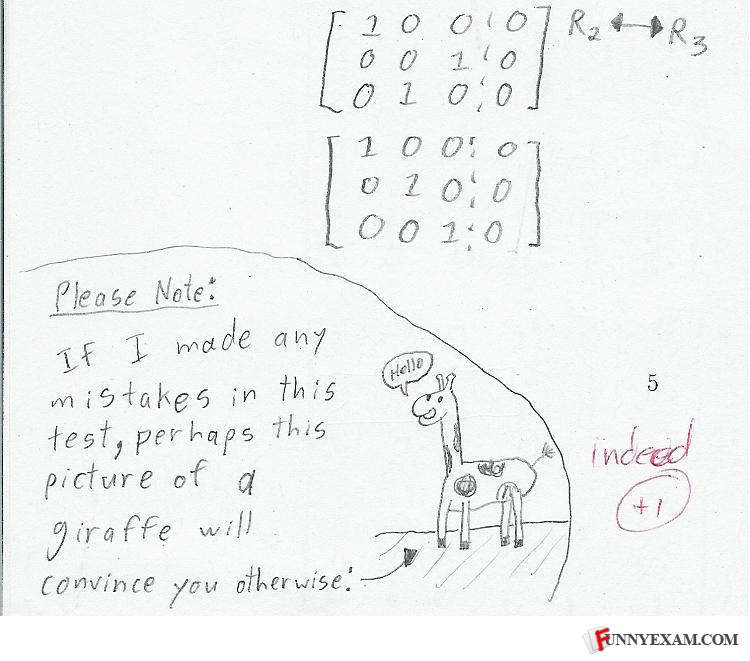 1 0 0 0 R2 ↔ R3
0 0 1 0
0 1 0 0
1 0 0 0
0 1 0 0
0 0 1 0
Please Note:
If I made any
mistakes in this
test, perhaps this
picture of a
giraffe will
convince you otherwise:
Hello
5
indeed
+1
FUNNYEXAM.COM